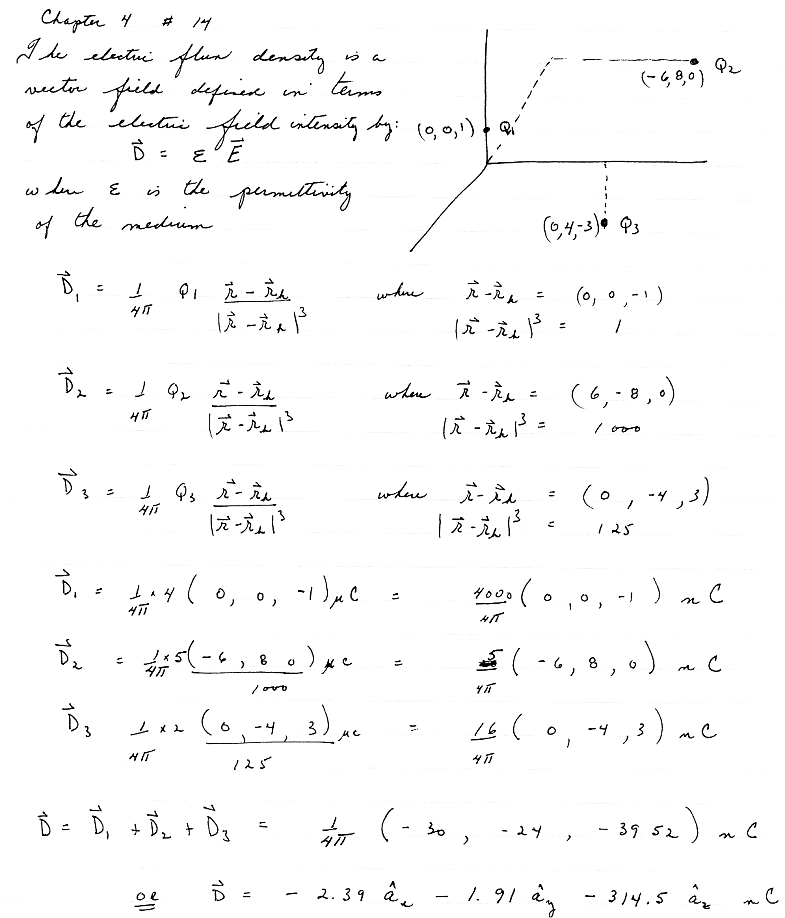 Chapter 4 # 14
The electric flux density is a
vector field defined in terms
of the electric field intensity by:
D⃗ = ε E⃗
where ε is the permittivity
of the medium
(0, 0, 1) Q1
(-6, 8, 0) Q2
(0, 4, -3) Q3
D⃗₁ = 1/4π Q1 (r⃗ - r⃗ₖ)/|r⃗ - r⃗ₖ|³ where r⃗ - r⃗ₖ = (0, 0, -1)
|r⃗ - r⃗ₖ|³ = 1
D⃗₂ = 1/4π Q2 (r⃗ - r⃗ₖ)/|r⃗ - r⃗ₖ|³ where r⃗ - r⃗ₖ = (6, -8, 0)
|r⃗ - r⃗ₖ|³ = 1000
D⃗₃ = 1/4π Q3 (r⃗ - r⃗ₖ)/|r⃗ - r⃗ₖ|³ where r⃗ - r⃗ₖ = (0, -4, 3)
|r⃗ - r⃗ₖ|³ = 125
D⃗₁ = 1/4π × 4 (0, 0, -1) μC = 4000/4π (0, 0, -1) nC
D⃗₂ = 1/4π × 5 (-6, 8 0)/1000 μC = 5/4π (-6, 8, 0) nC
D⃗₃ 1/4π × 2 (0, -4, 3)/125 μC = 16/4π (0, -4, 3) nC
D⃗ = D⃗₁ + D⃗₂ + D⃗₃ = 1/4π (-30, -24, -3952) nC
or D⃗ = -2.39 âₓ - 1.91 â_y - 314.5 â_z nC